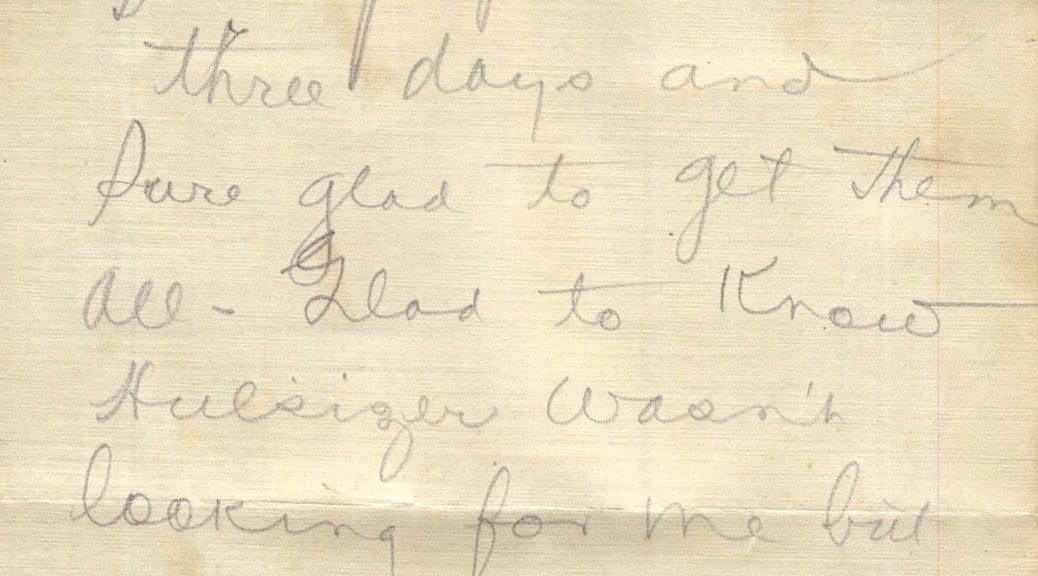 three days and
sure glad to get them
all - Glad to Know
Hulsizer wasn't
looking for me but